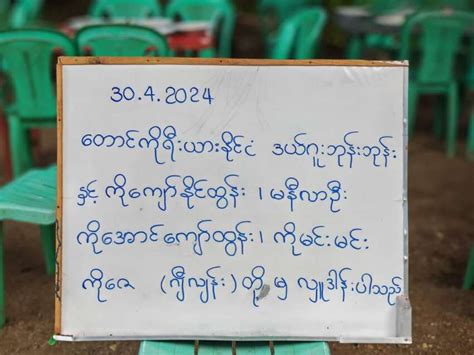 30.4.2024
တောင်ကိုရီးယားနိုင်ငံ ဒယ်ဂူးဘုန်းဘုန်း
နှင့် ကိုကျော်နိုင်ထွန်း ၊ မနီလာဦး
ကိုအောင်ကျော်ထွန်း၊ ကိုမင်းမင်း
ကိုဇေ (ဂျီလျန်း) တို့ မှ လှူဒါန်းပါသည်